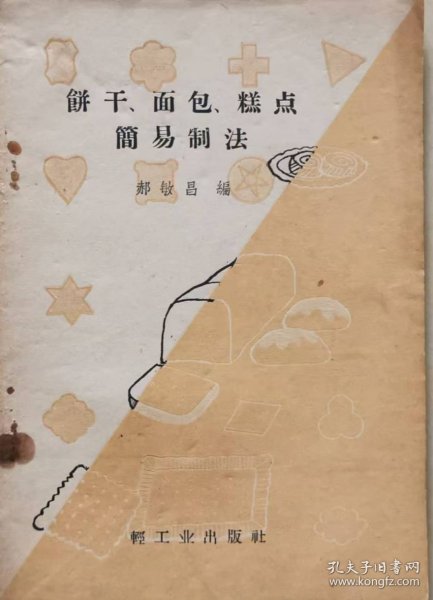 餅干、面包、糕点
簡易制法
郝敏昌 編
輕工业出版社
孔夫子旧书网
www.kongfz.com